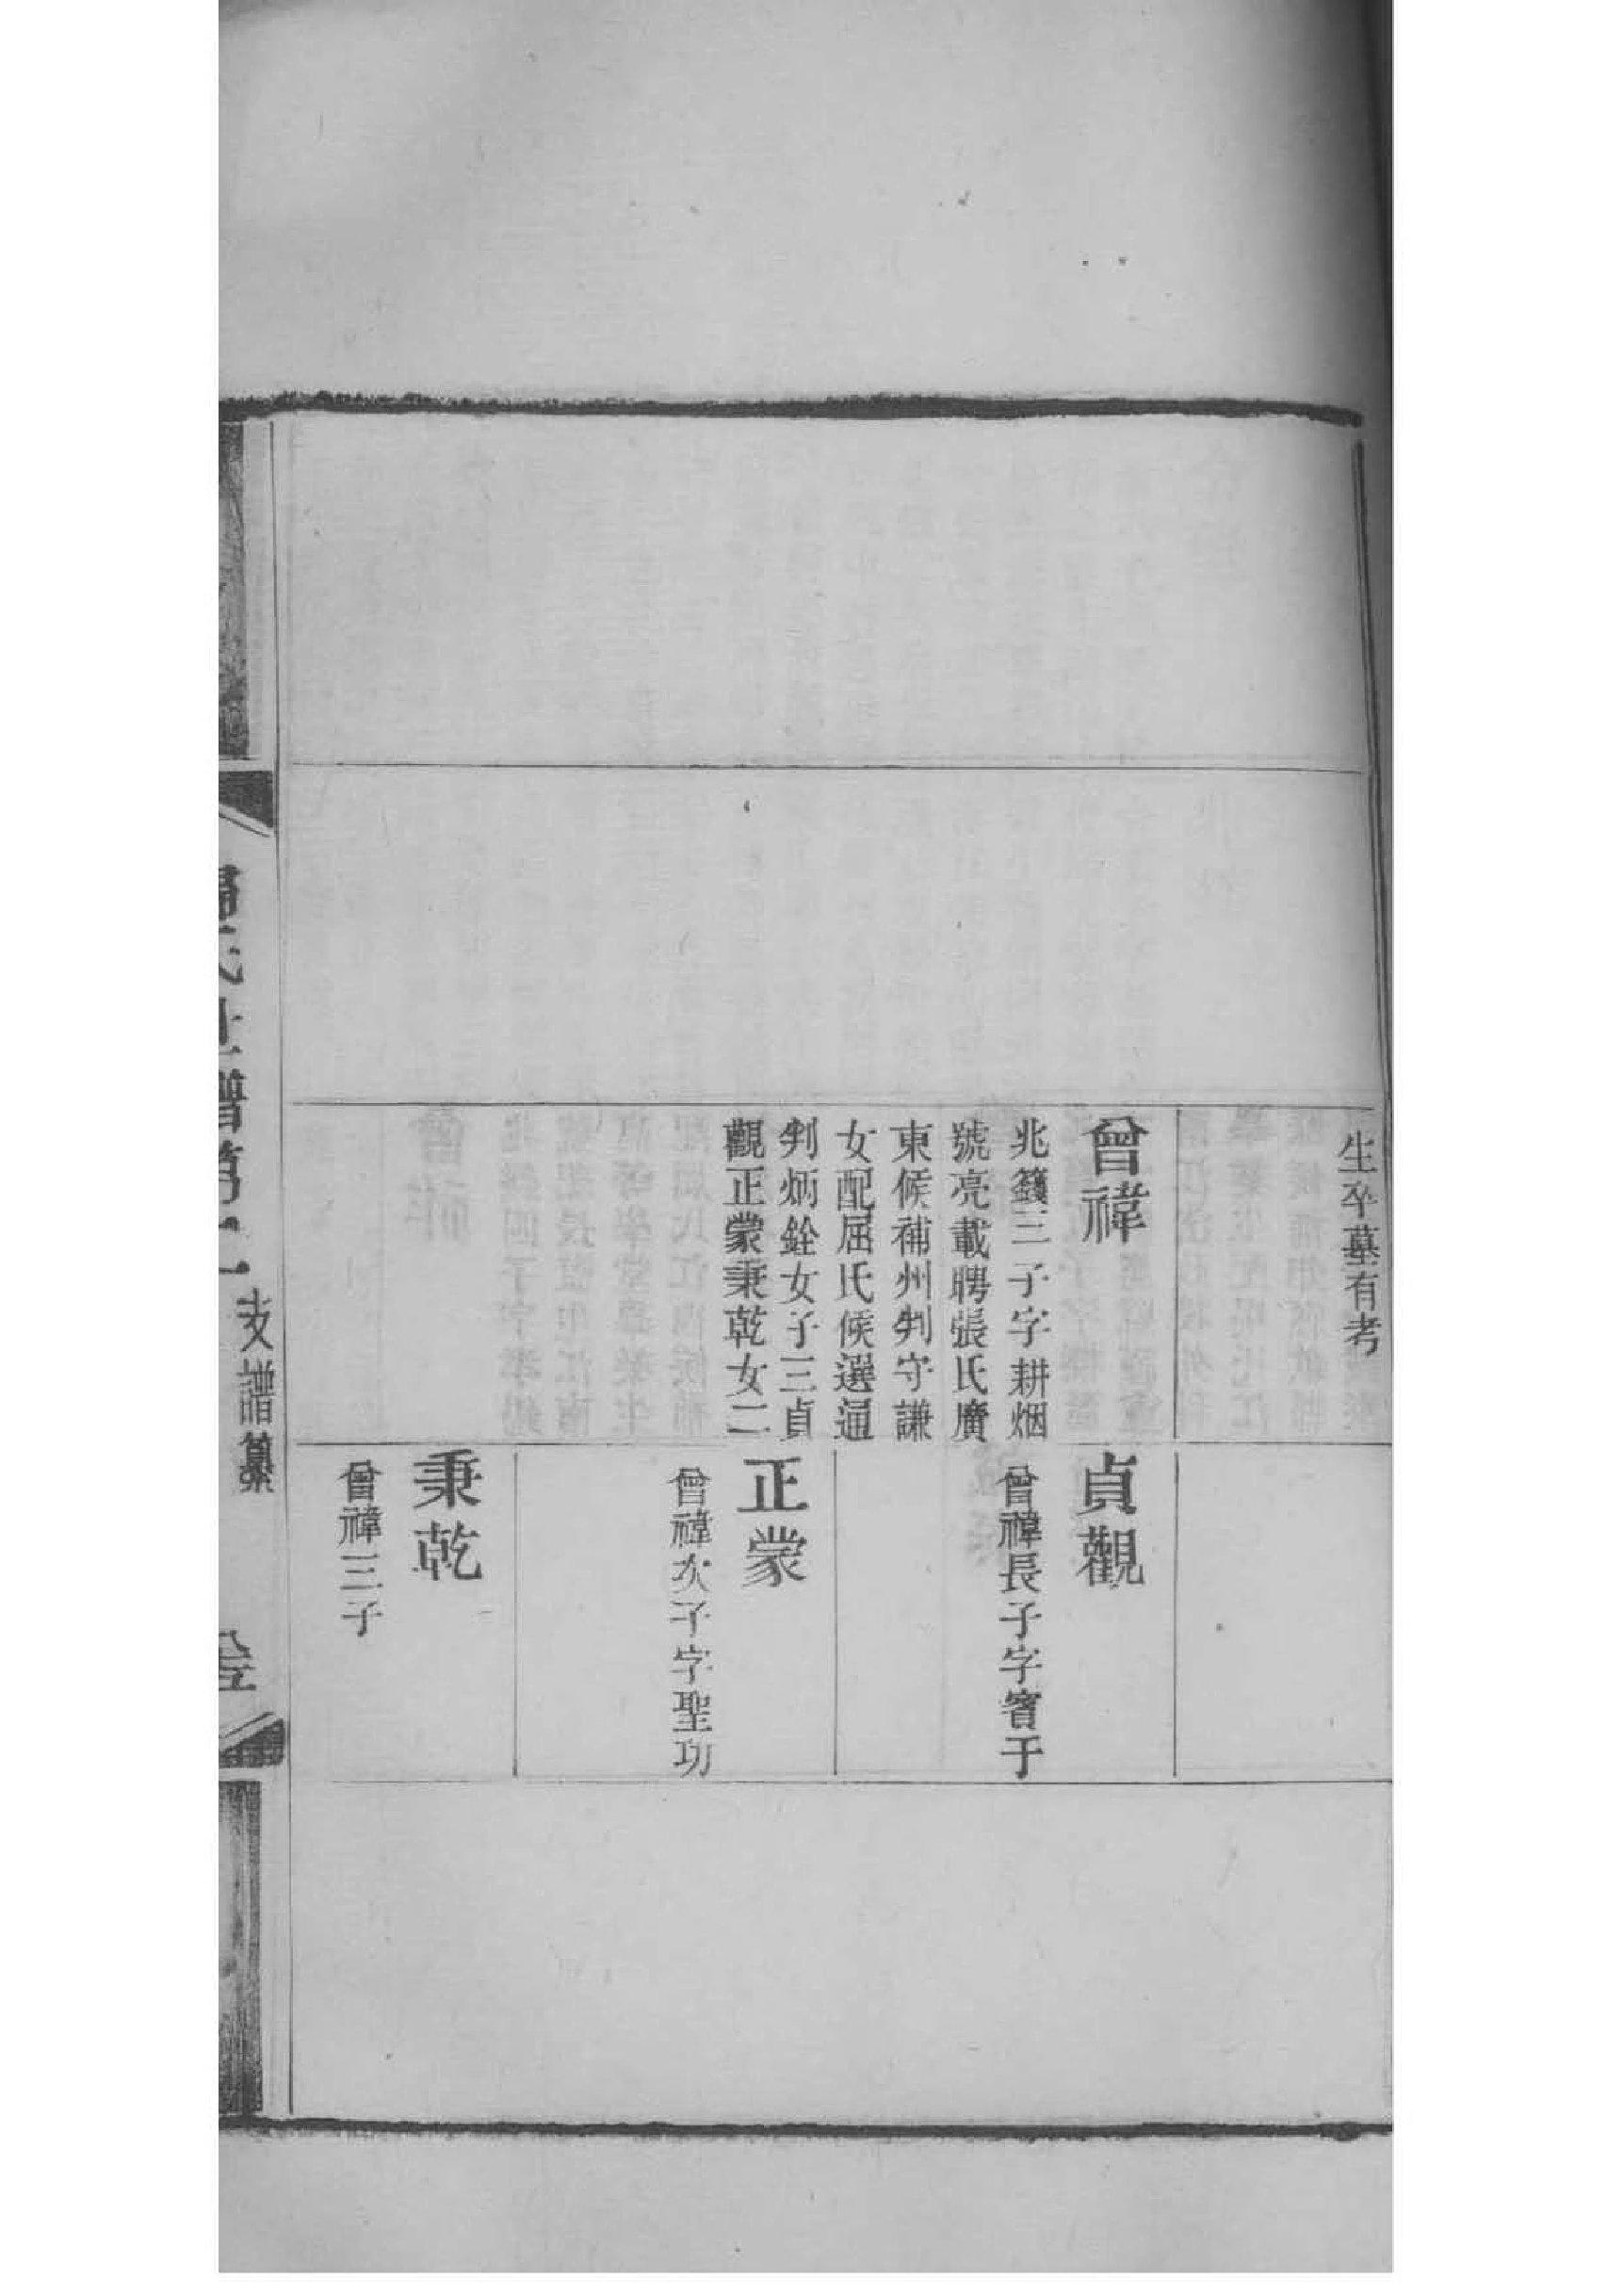 生卒墓有考
曾禕
兆籛三子字耕烟
號亮載聘張氏廣
東候補州判守謙
女配屈氏候選通
判炳銓女子三貞
觀正蒙秉乾女二
貞觀
曾禕長子字賓于
正蒙
曾禕次子字聖功
秉乾
曾禕三子
氏世譜第
支譜纂